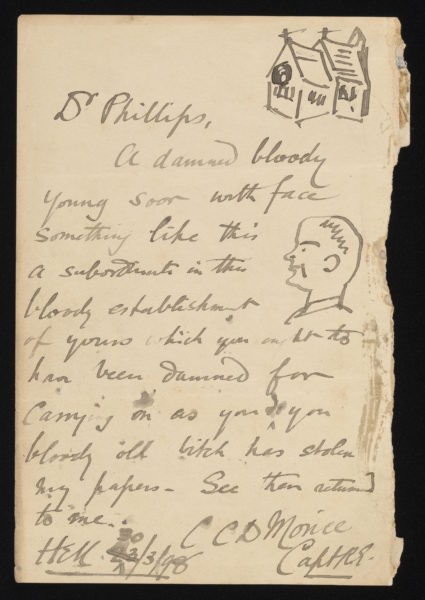 Dr Phillips,
A damned bloody
young soor with face
something like this
a subordinate in this
bloody establishment
of yours which you ought to
have been damned for
carrying on as you do you
bloody old bitch has stolen
my papers – See them returned
to me.
C C D Morice
Hell 30/3/98 Capt R.E.